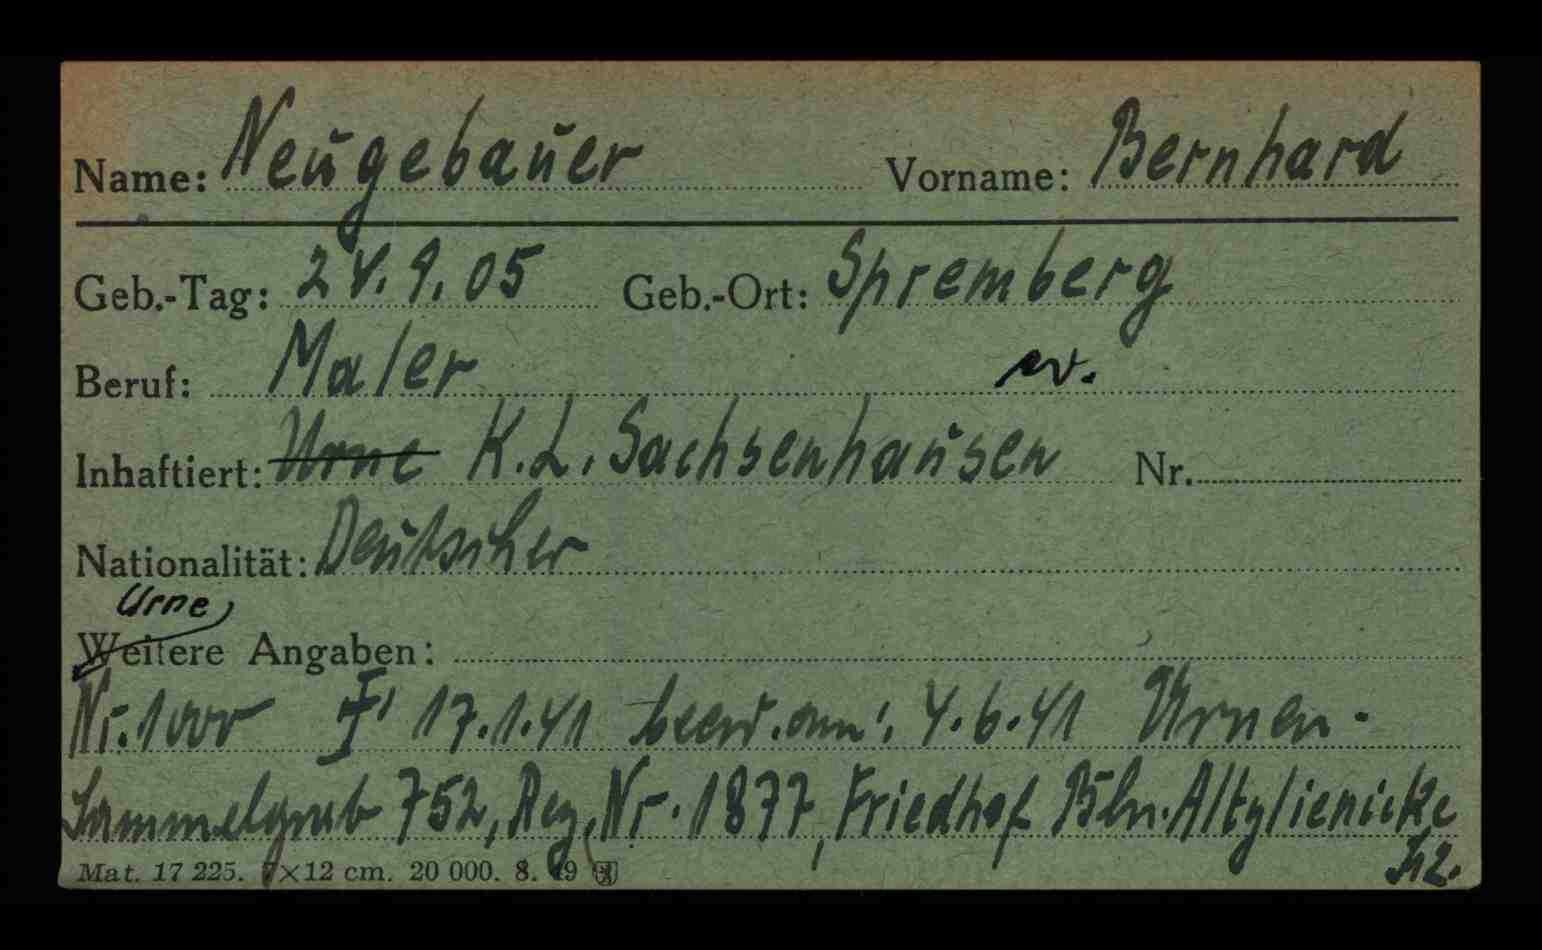 Name: Neugebauer Vorname: Bernhard
Geb.-Tag: 24.9.05 Geb.-Ort: Spremberg
Beruf: Maler ev.
Inhaftiert: Urne K.L. Sachsenhausen Nr.
Nationalität: Deutscher
Urne
Weitere Angaben:
Nr. 1000 17.1.41 beerd. am: 4.6.41 Urnen-
Sammelgrab 752, Reg. Nr. 1877, Friedhof Bln. Altglienicke
Mat. 17 225. 7×12 cm. 20 000. 8. 49